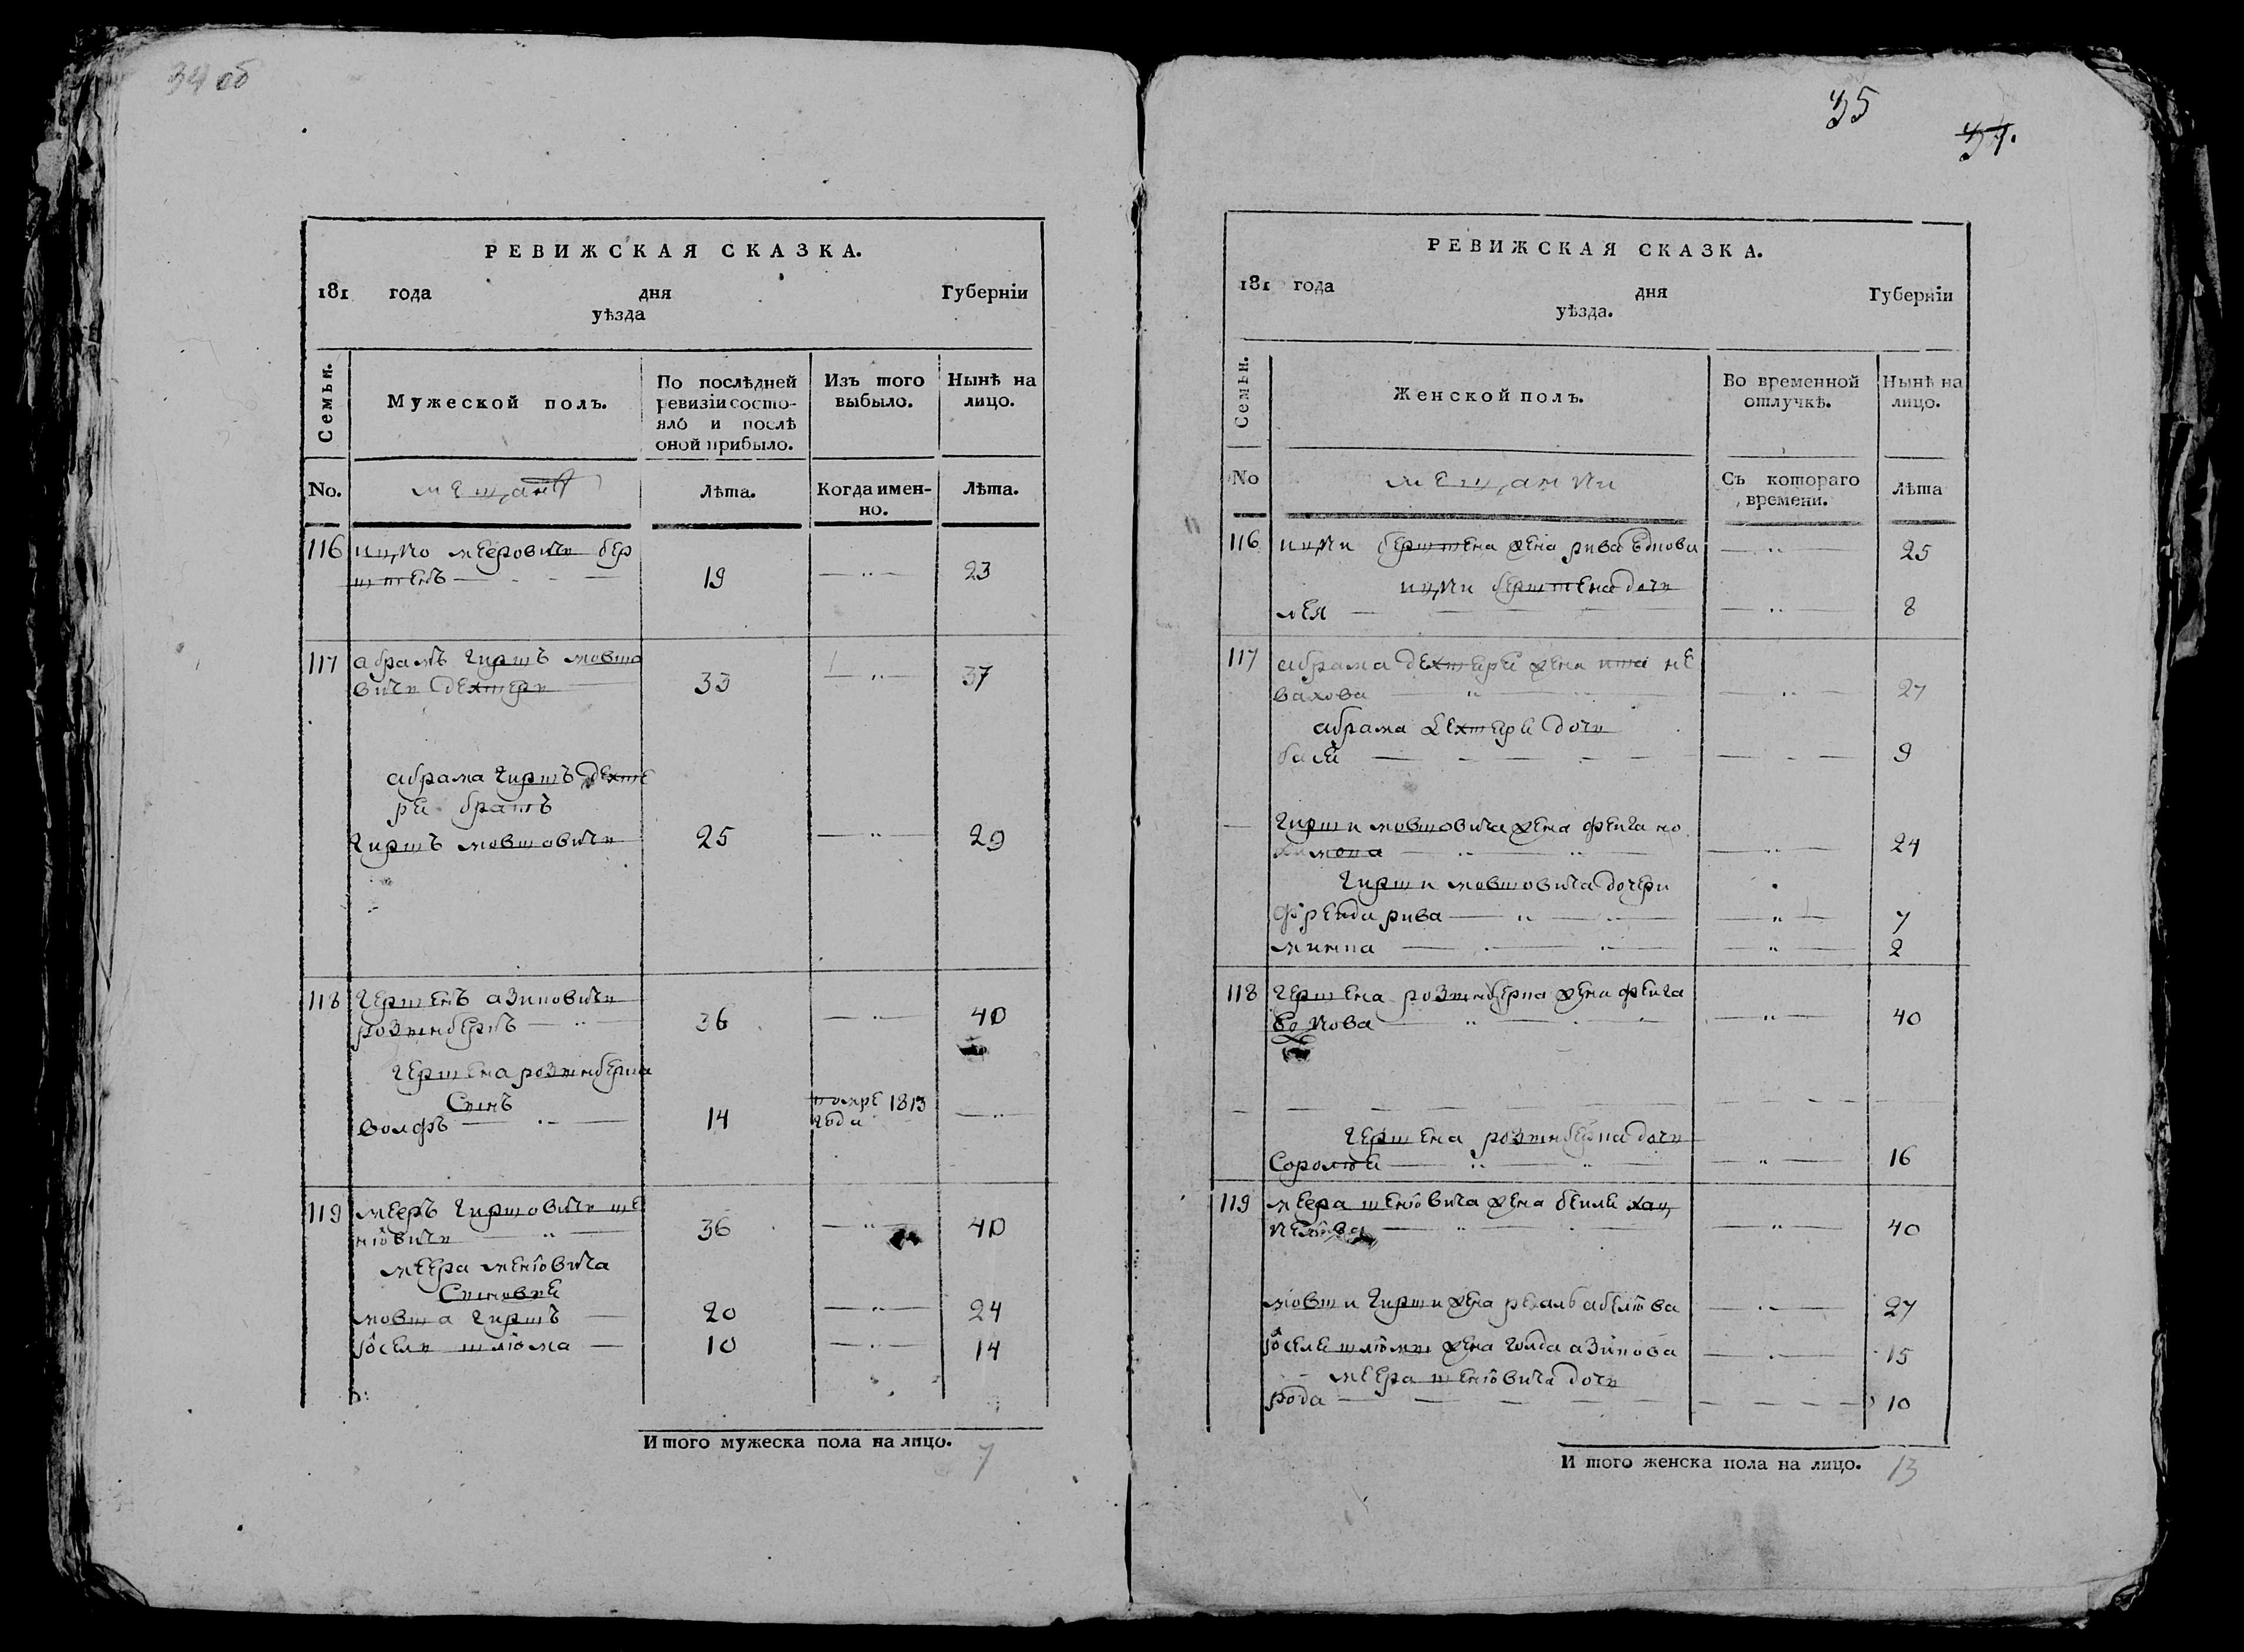 34 об
РЕВИЖСКАЯ СКАЗКА.
181 года дня Губернїи
уѣзда
Семьи.
Мужеской полъ.
По послѣдней ревизїи состояло и послѣ оной прибыло.
Изъ того выбыло.
Нынѣ на лицо.
No.
мещанѣ
Лѣта.
Когда именно.
Лѣта.
116 ицко мееровичь бер
штенъ 19 23
117 абрамъ гиршъ мовша
вичь дехтерь 33 37
абрама гиршъ дехте
ри братъ
гиршъ мовшовичь 25 29
118 гершенъ азиковичь
розинберкъ 36 40
гершена розинберка
Сынъ
волфъ 14 1813
года
119 мееръ гиршовичь ше
нїовичь 36 40
меера шенїовича
Сыновьѣ
мовша гиршъ 20 24
їосель шлїома 10 14
Итого мужеска пола на лицо. 7
35
34.
РЕВИЖСКАЯ СКАЗКА.
181 года дня Губернїи
уѣзда.
Семьи.
Женской полъ.
Во временной отлучкѣ.
Нынѣ на лицо.
No
мещанки
Съ котораго времени.
Лѣта
116 ицки берштена жена рива 25
ицки берштена дочь
лея 8
117 абрама дехтера жена ита не
вахова 27
абрама дехтера дочь
бася 9
гирши мовшовича жена фейга но
24
гирши мовшовича дочери
фрейда рива 7
минца 2
118 гершена розинберка жена фейга
40
гершена розинберка дочь
16
119 меера шенїовича жена бейля хац
келїова 40
мовши гирши жена 27
їоселя шлїомы жена голда азикова 15
меера шенїовича дочь
рода 10
Итого женска пола на лицо. 13